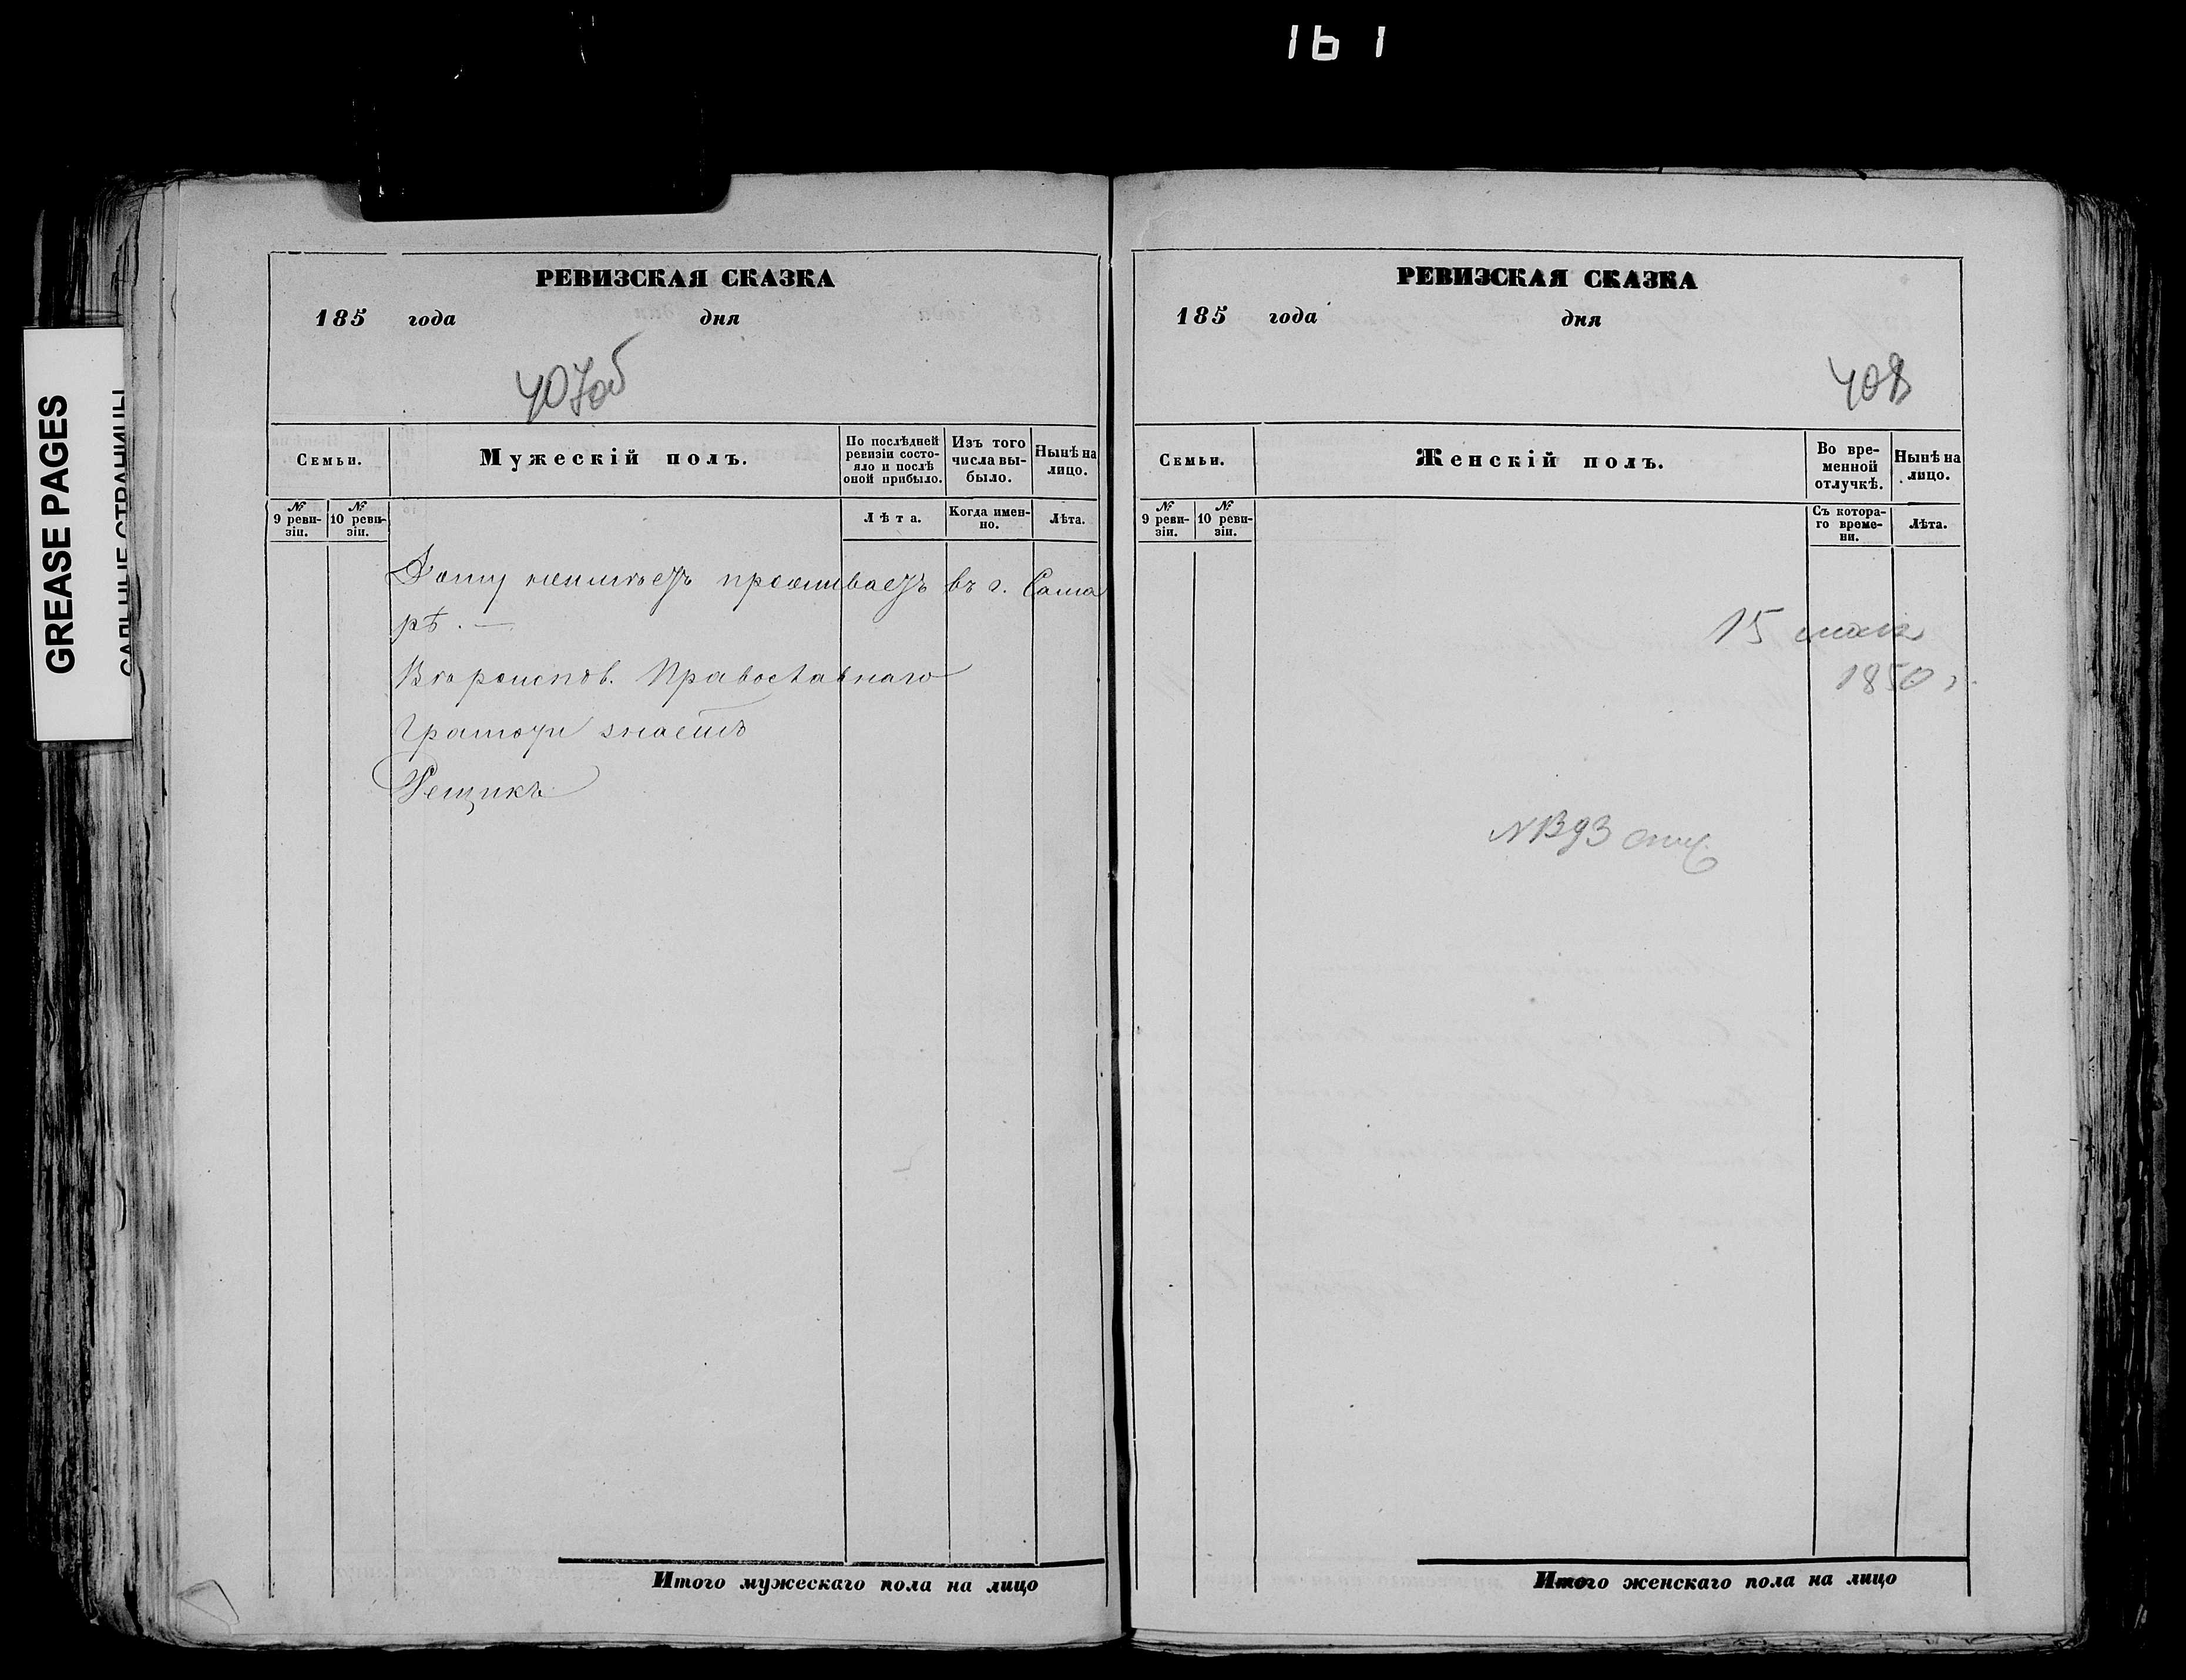 161
GREASE PAGES
САЛЬНЫЕ СТРАНИЦЫ
РЕВИЗСКАЯ СКАЗКА
185 года дня
407об
Семьи.
Мужескій полъ.
По послѣдней ревизіи состояло и послѣ оной прибыло.
Изъ того числа выбыло.
Нынѣ на лицо.
№ 9 ревизіи.
№ 10 ревизіи.
Лѣта.
Когда именно.
Лѣта.
Дому неимѣетъ проживаетъ въ г. Сама
рѣ. —
Вѣроиспов. Православнаго
Грамоту знаетъ
Рещикъ
Итого мужескаго пола на лицо
РЕВИЗСКАЯ СКАЗКА
185 года дня
408
Семьи.
Женскій полъ.
Во временной отлучкѣ.
Нынѣ на лицо.
№ 9 ревизіи.
№ 10 ревизіи.
Съ котораго времени.
Лѣта.
15 мая
1850 г.
Итого женскаго пола на лицо